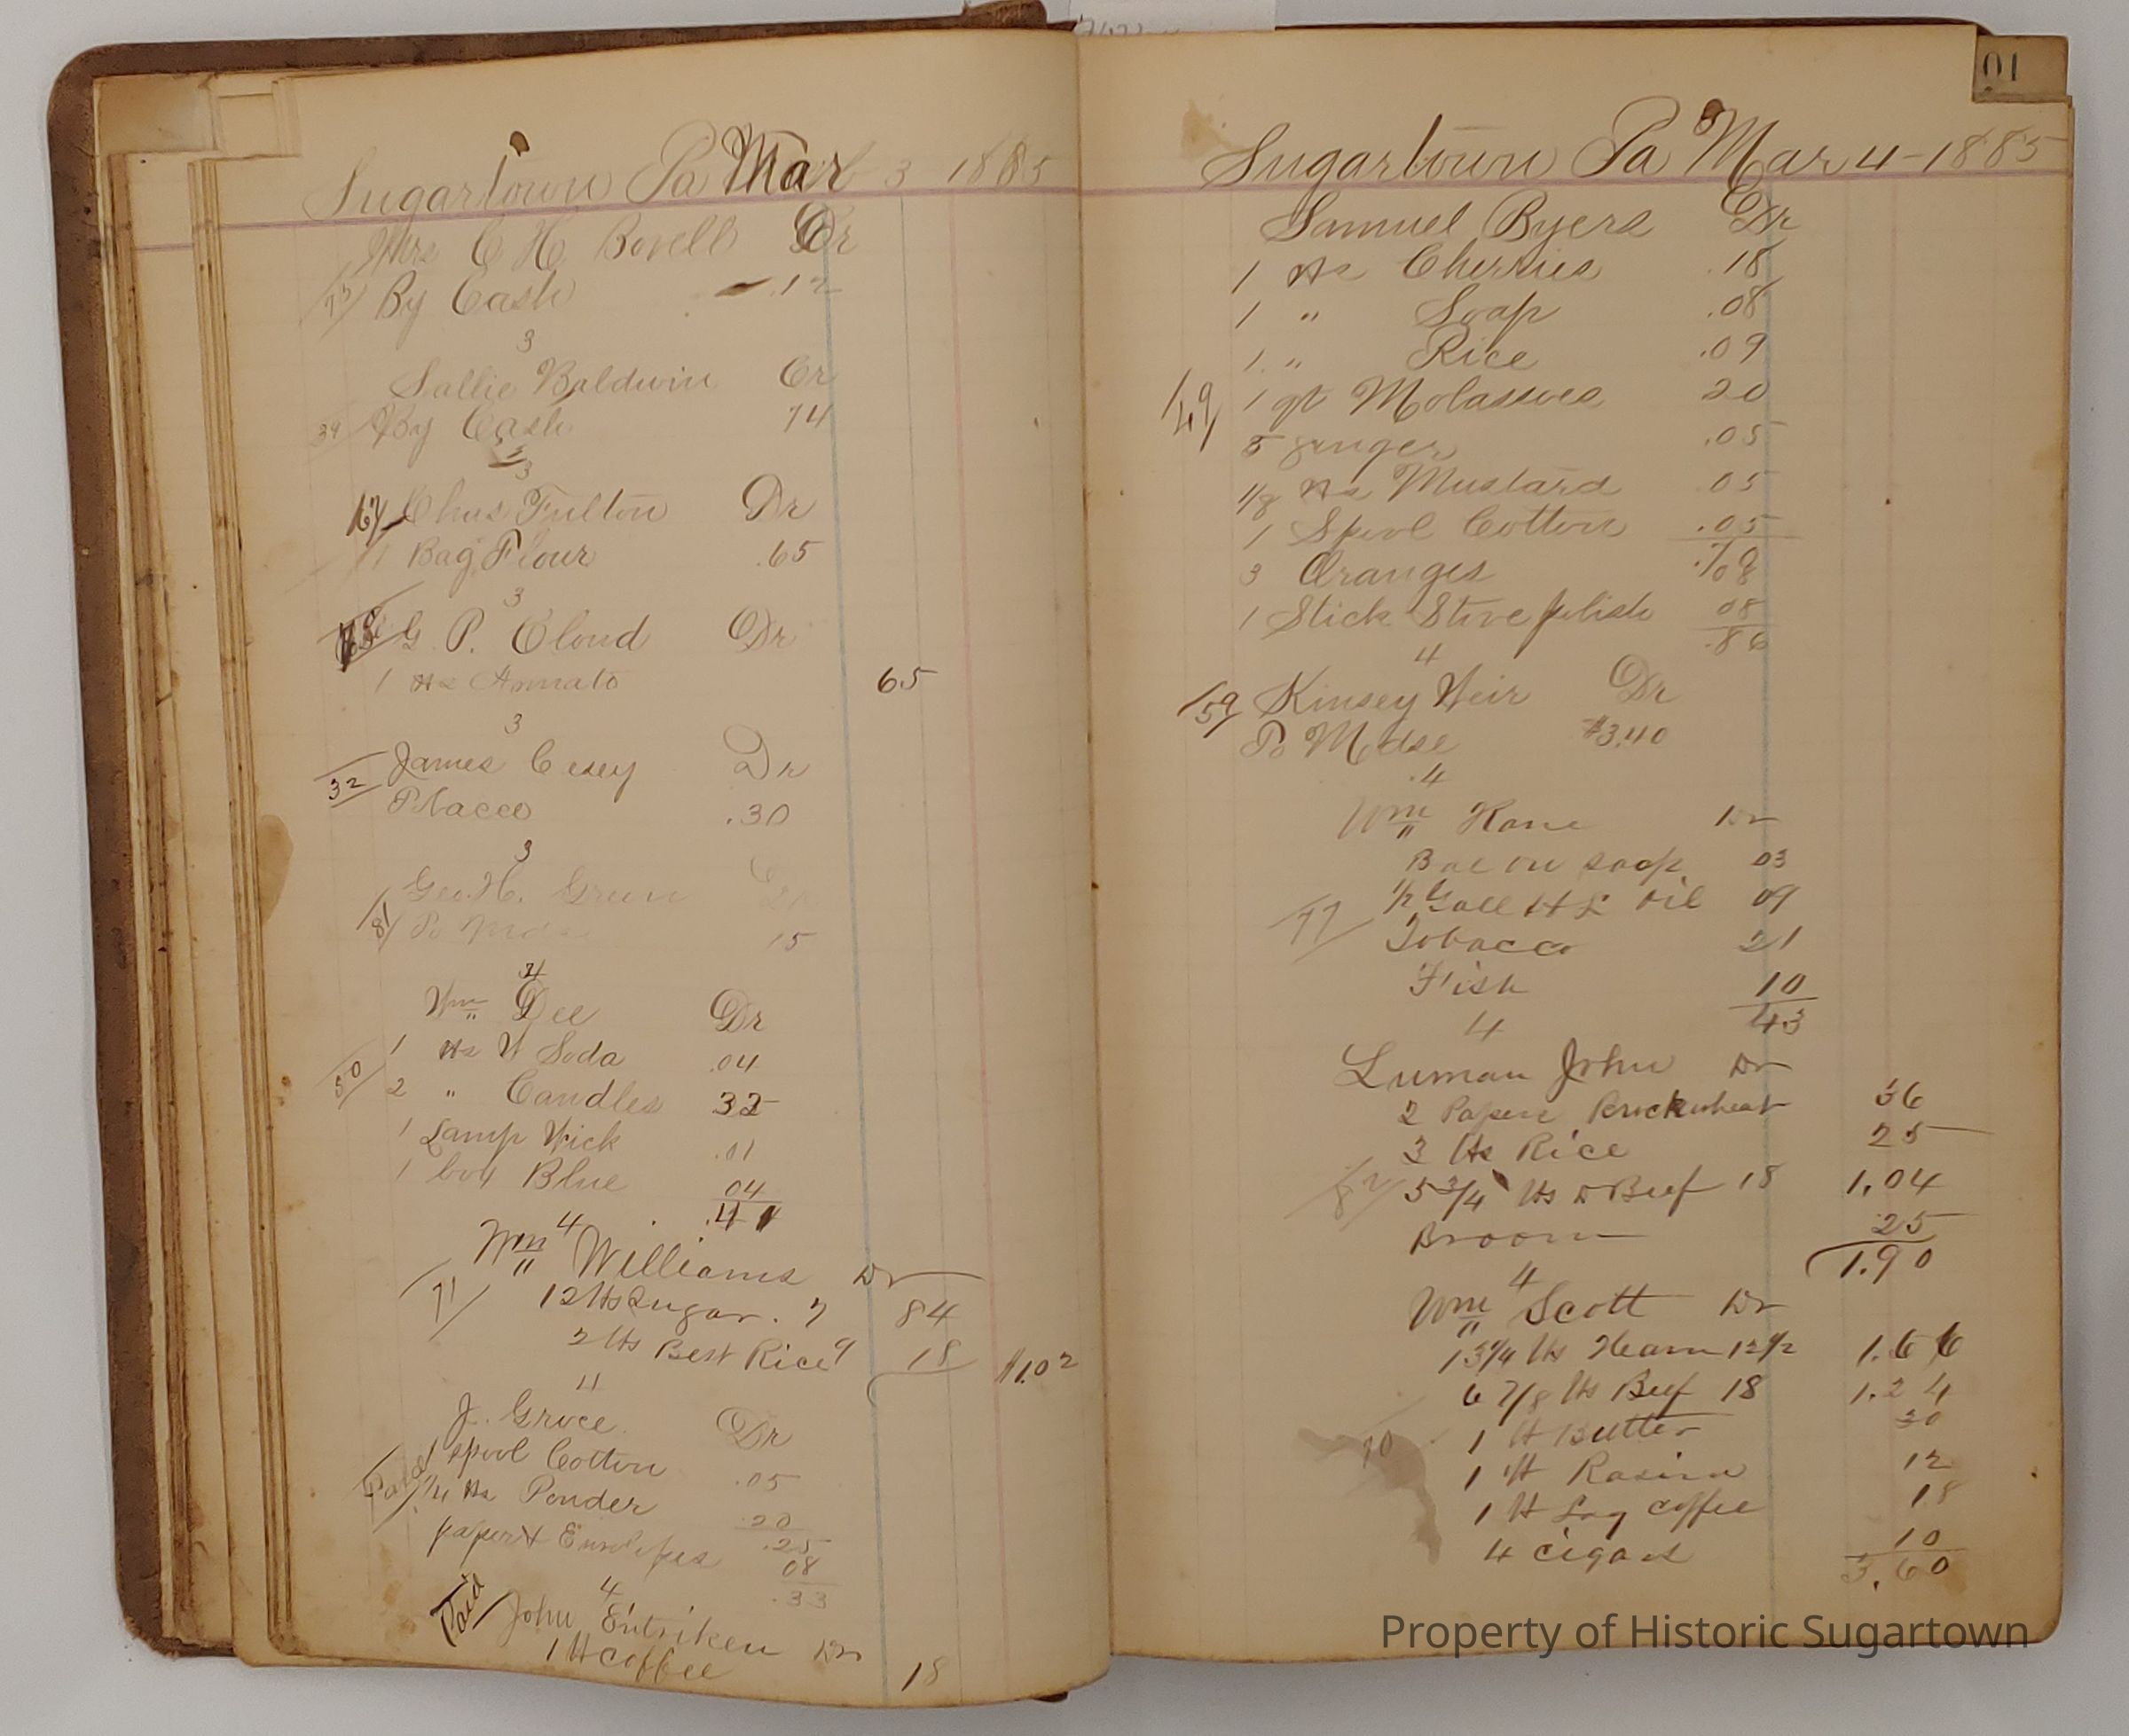 Sugartown Pa Mar 3 1885
Mrs C H Bovell Cr
73 By Cash .12
3
Sallie Baldwin Cr
39 By Cash 74
3
Chas Fulton Dr
1 Bag Flour .65
3
G. P. Cloud Dr
1 lbs Annato 65
3
James Cesey Dr
32
Tobacco .30
3
Geo. H. Green
81 To 15
4
Wm Dee Dr
1 lbs W Soda .04
50 2 " Candles 32
1 Lamp Wick .01
1 box Blue 04
.41
4
Wm Williams Dr
71 12 lbs Sugar . 7 84
2 lbs Best Rice 9 18 $1.02
4
J. Groce Dr
1 spool Cotton .05
Paid 1/4 lbs Powder .20
.25
paper & Envelopes 08
.33
4
Paid John Entriken Dr
1 lb Coffee 18
01
Sugartown Pa Mar 4 - 1885
Samuel Byers Dr
1 lbs Cherries .18
1 " Soap .08
1 " Rice .09
149 1 qt Molasses 20
5 ginger .05
1/8 lbs Mustard 05
1 Spool Cotton .05
3 Oranges .08
1 Stick Stove polish 08
.86
4
159 Kinsey Weir Dr
To Mdse $3.40
4
Wm Kane Dr
Bar soap 03
1/2 Gall H L Oil 09
77 Tobacco 21
Fish 10
43
4
Luman John Dr
2 Papers Buckwheat 36
3 lbs Rice 25
82 5 3/4 lbs D Beef 18 1.04
Broom 25
1.90
4
Wm Scott Dr
13 1/4 lbs Ham 12 1/2 1.66
6 7/8 lbs Beef 18 1.24
1 lb Butter 30
70 1 lb Rasins 12
1 lb Lag Coffee 18
4 cigars 10
3.60
Property of Historic Sugartown